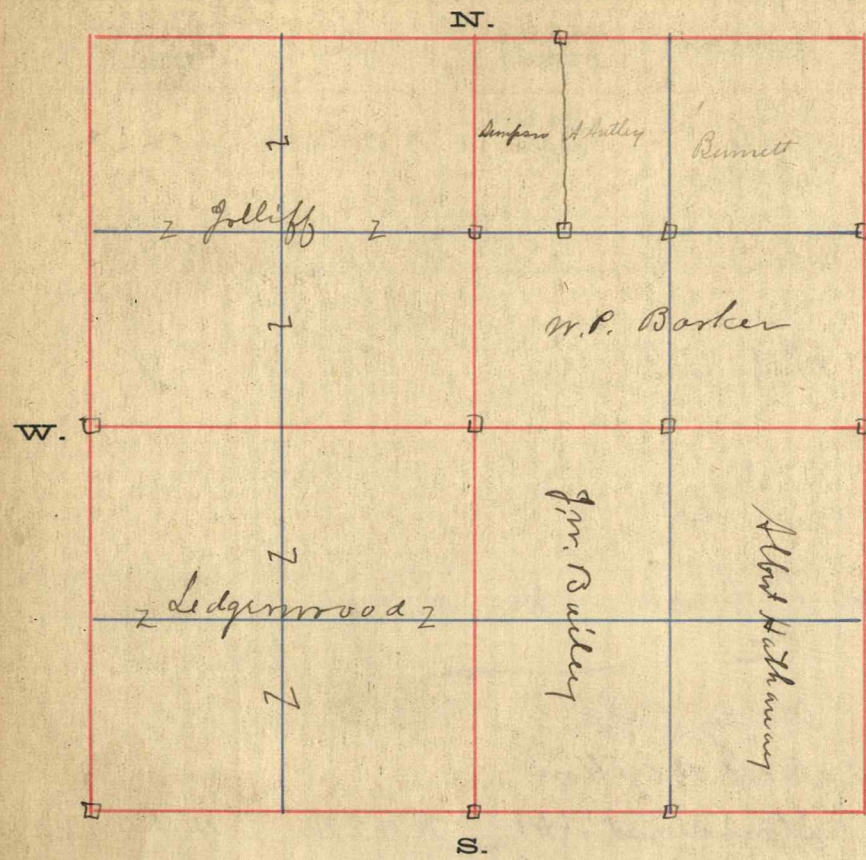 N.
Simpson A Autley
Bennett
Z
Z Jolliff Z
Z
W. P. Barker
W.
J. W. Bailey
Albert Hathaway
Z
Z Ledgerwood Z
Z
S.